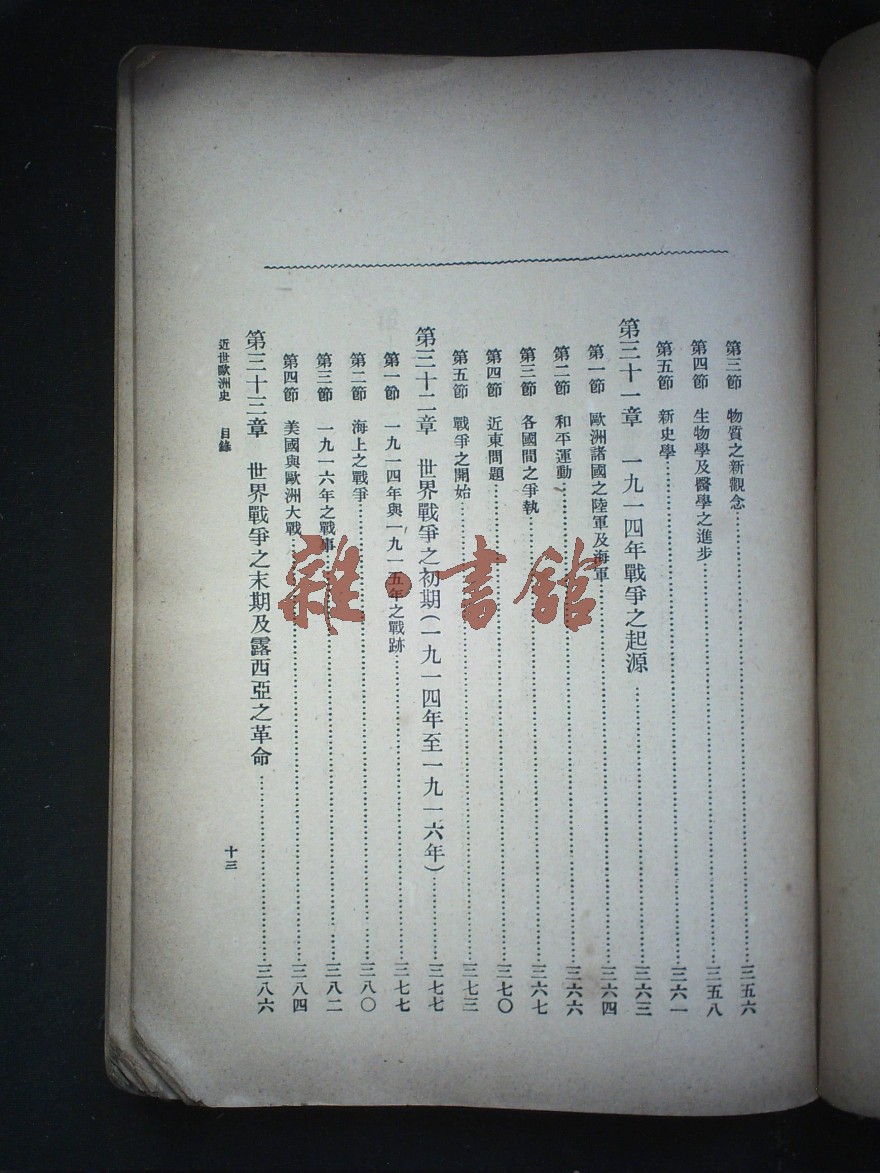 第三節 物質之新觀念……三五六
第四節 生物學及醫學之進步……三五八
第五節 新史學……三六一
第三十一章 一九一四年戰爭之起源……三六三
第一節 歐洲諸國之陸軍及海軍……三六四
第二節 和平運動……三六六
第三節 各國間之爭執……三六七
第四節 近東問題……三七〇
第五節 戰爭之開始……三七三
第三十二章 世界戰爭之初期(一九一四年至一九一六年)……三七七
第一節 一九一四年與一九一五年之戰跡……三七七
第二節 海上之戰爭……三八〇
第三節 一九一六年之戰事……三八二
第四節 美國與歐洲大戰……三八四
第三十三章 世界戰爭之末期及露西亞之革命……三八六
近世歐洲史 目錄 十三
雜·書館